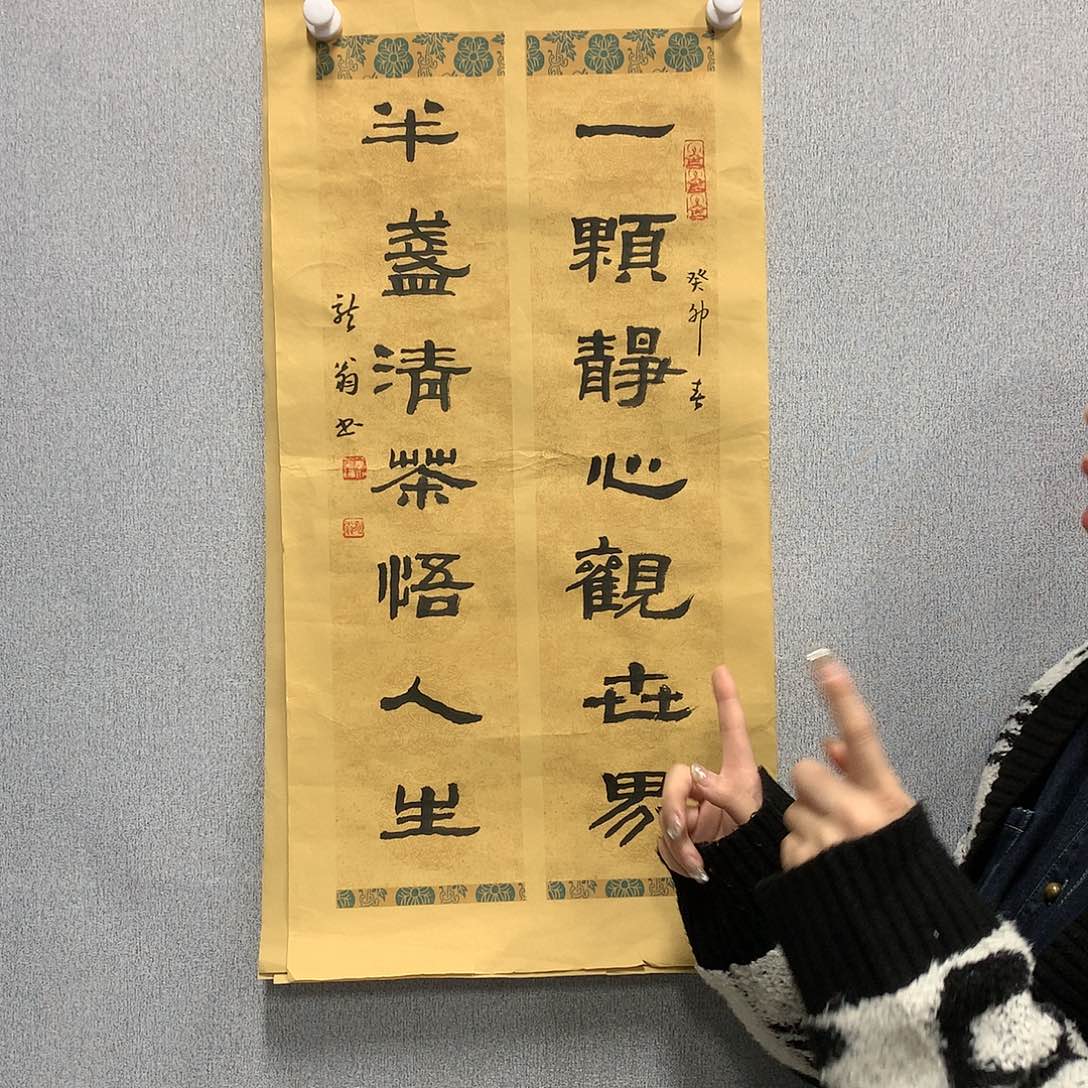 癸卯春
一顆靜心觀世界
半盞清茶悟人生
龍翁书